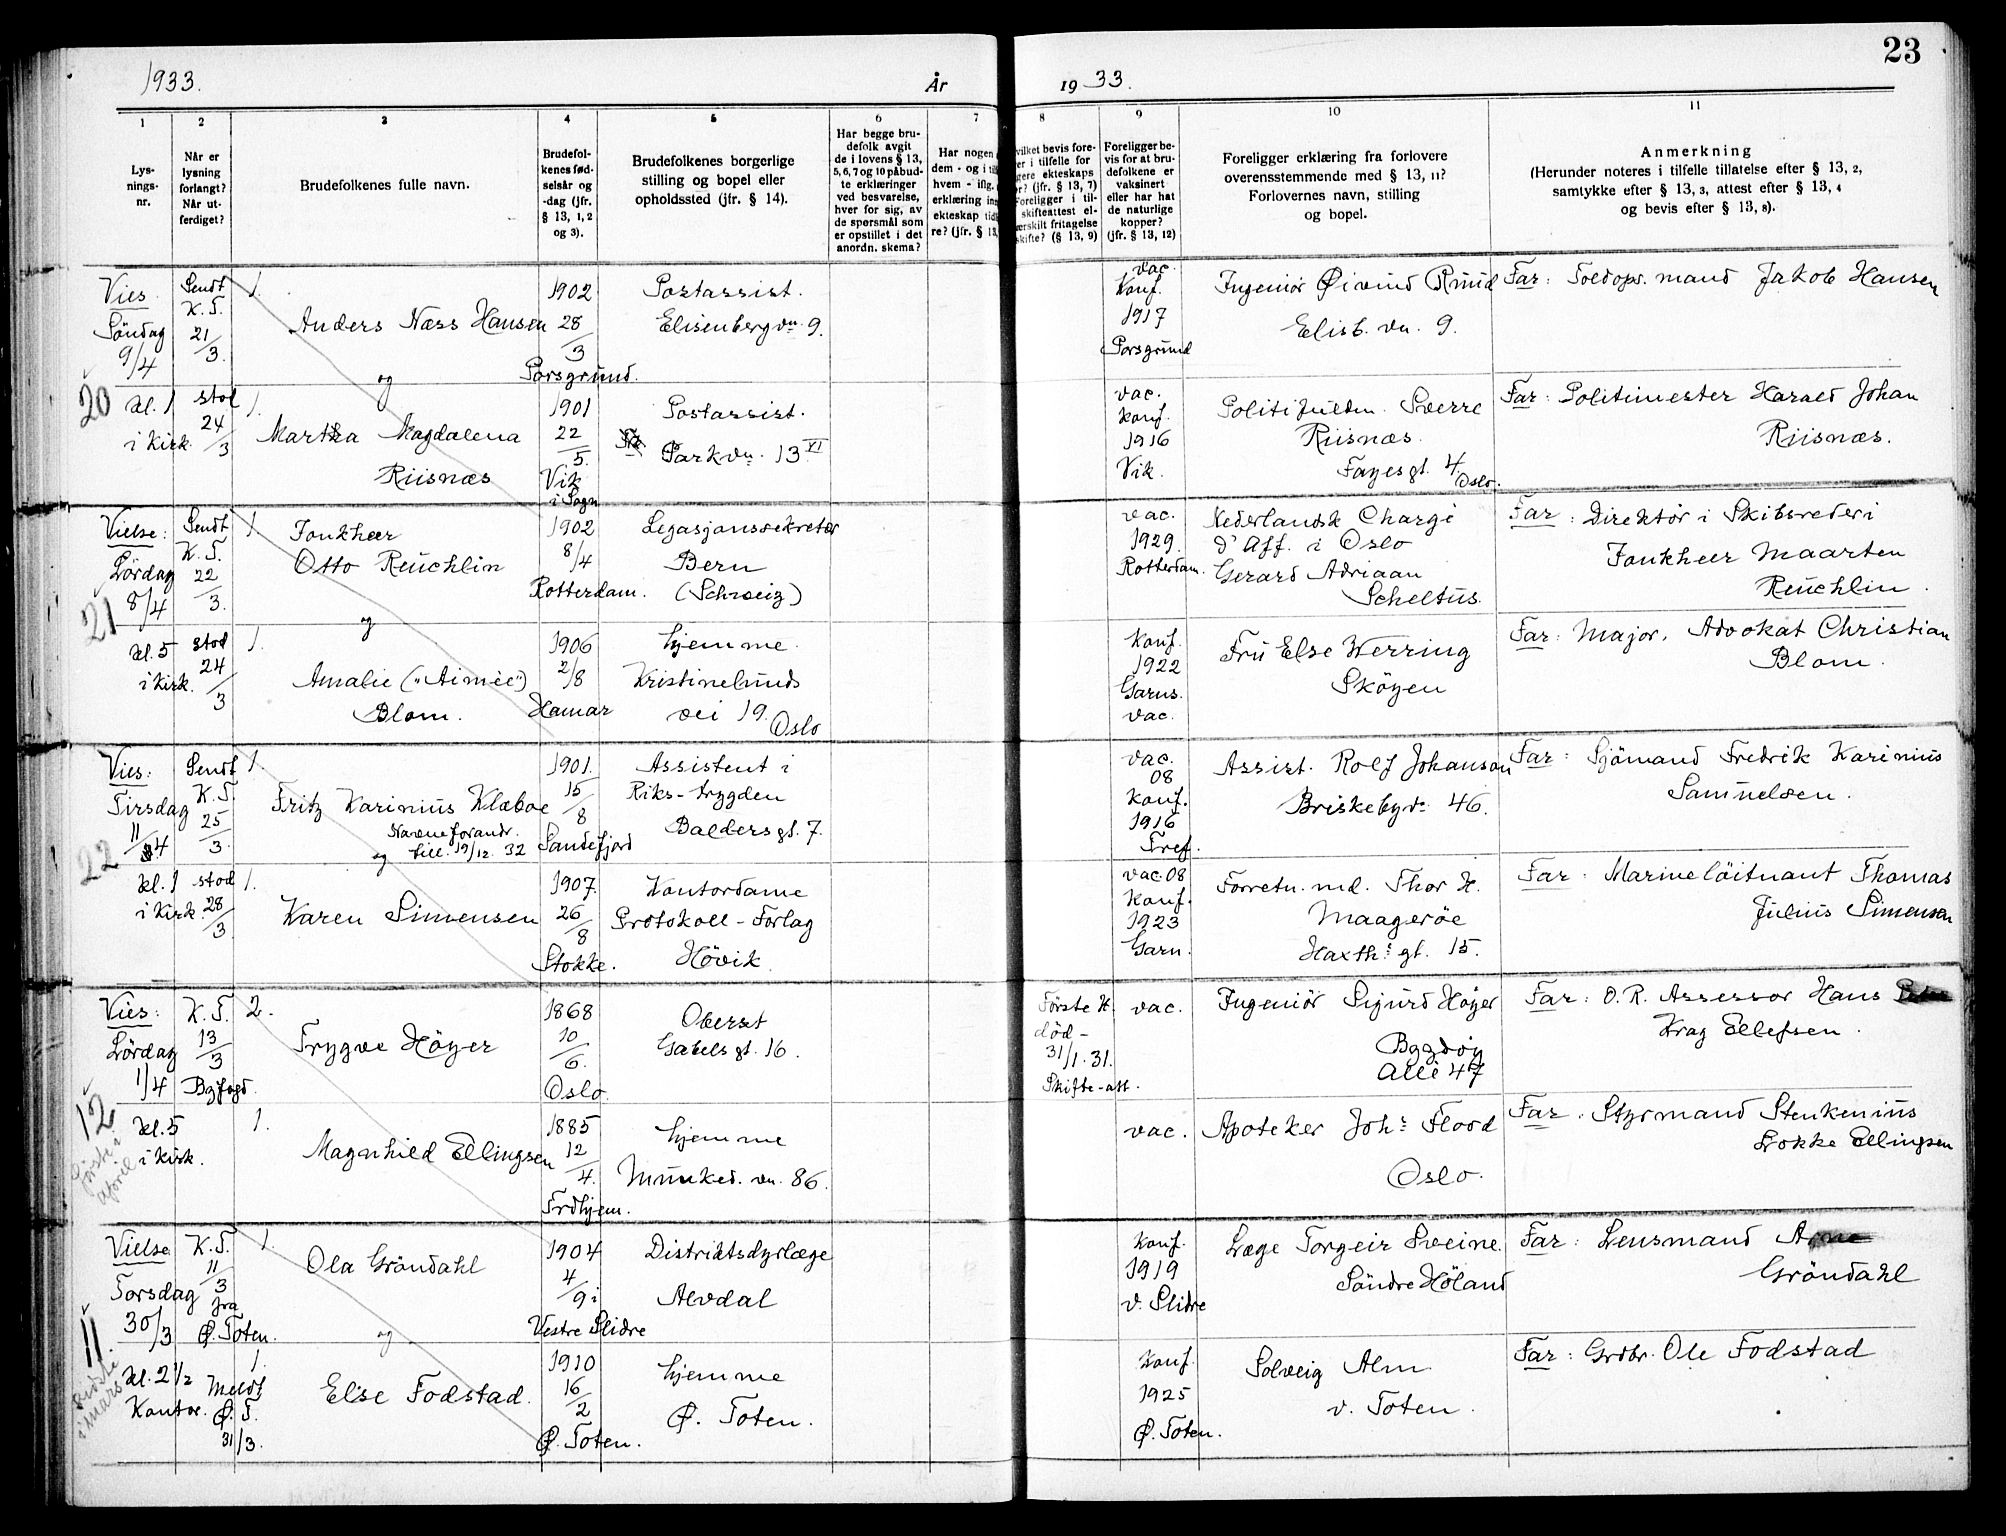 23
1933.
År
19 33.
1
2
3
4
5
6
7
8
9
10
11
Lys-
nings-
nr.
Når er
lysning
forlangt?
Når ut-
ferdiget?
Brudefolkenes fulle navn.
Brudefol-
kenes fød-
selsår og
-dag (jfr.
§ 13, 1, 2
og 3).
Brudefolkenes borgerlige
stilling og bopel eller
opholdssted (jfr. § 14).
Har begge bru-
defolk avgit
de i lovens § 13,
5, 6, 7 og 10 påbud-
te erklæringer
ved besvarelse,
hver for sig, av
de spørsmål som
er opstillet i det
anordn. skema?
Har nogen
dem - og i
hvem - iflg.
erklæring
ekteskap
re? (jfr. § 13,
vilket bevis fore-
er i tilfelle for
gere ekteskaps
? (jfr. § 13, 7)
Foreligger i til-
skifteattest el-
ærskilt fritagelse
skifte? (§ 13, 9)
Foreligger be-
vis for at bru-
defolkene er
vaksinert
eller har hat
de naturlige
kopper?
(jfr. § 13, 12)
Foreligger erklæring fra forlovere
overensstemmende med § 13, 11?
Forlovernes navn, stilling
og bopel.
Anmerkning
(Herunder noteres i tilfelle tillatelse efter § 13, 2,
samtykke efter § 13, 3, attest efter § 13, 4
og bevis efter § 13, 8).
20
Vies
Söndag
9/4
kl. 1
i Kirk.
Sendt
K. T.
21/3.
stod
24/3
1.
Anders Næss Hansen
og
1902
28/3
Porsgrund.
Postassist.
Elisenbergvn 9.
vac.
Konf.
1917
Porsgrund
Ingeniör Øivind Ruud
Elisb. vn. 9.
Far: Toldops. mand Jakob Hansen
1.
Martha Magdalena
Riisnæs
1901
22/5.
Vik
i Sogn
Postassist.
Parkvn. 13 VI
vac.
Konf.
1916
Vik.
Politifuldm. Sverre
Riisnæs.
Fayesgt. 4.
Oslo.
Far: Politimester Harald Johan
Riisnæs.
21
Vielse:
Lördag
8/4
kl. 5
i Kirk.
Sendt
K. T.
22/3.
stod
24/3
1.
Jonkheer
Otto Reuchlin
og
1902
8/4
Rotterdam.
Legasjonssekretær
Bern
(Schweiz)
vac.
1929.
Rotterdam.
Nederlandsk Chargé
d'Aff. i Oslo
Gerard Adriaan
Scheltus.
Far: Direktör i Skibsrederi
Jonkheer Maarten
Reuchlin.
1.
Amalie ("Aimée")
Blom.
1906
2/8
Hamar
hjemme.
Kristinelunds
vei 19.
Oslo
Konf.
1922
Garns.
vac.
Fru Else Werring
Sköyen
Far: Major, Advokat Christian
Blom.
22
Vies:
Tirsdag
11/4
kl. 1
i Kirk.
Sendt
K. T.
25/3.
stod
28/3
1.
Fritz Karinius Klæboe
Navneforandr.
bill. 19/12. 32
og
1901.
15/8
Sandefjord
Assistent i
Riks-trygden
Baldersgt. 7.
vac.
08
Konf.
1916
Tref.
Assist. Rolf Johanson
Briskebyv. 46.
Far: Sjömand Fredrik Karinius
Samuelsen.
1.
Karen Simensen
1907.
26/8
Stokke.
Kontordame
Protokoll-Forlag
Hövik
vac. 08
Konf.
1923
Garn.
Forretn. md. Thor H.
Maageröe
Haxth: gt. 15.
Far: Marinelöitnant Thomas
Julius Simensen
12
förste i
april
Vies:
Lördag
1/4
kl. 5
i Kirk.
K. T.
13/3
Byfogd.
2.
Trygve Höyer
1868
10/6.
Oslo.
Oberst
Gabelsgt. 16.
Förste H.
död -
31/1. 31.
Skifte-att.
vac.
Ingeniör Sigurd Höyer
Bygdöy
Allé 47
Far: O. R. Assessor Hans
Krag Ellefsen.
1.
Magnhild Ellingsen
1885
12/4.
Trdhjem.
hjemme
Munked. vn. 86.
vac.
Apoteker Joh: Flood
Oslo.
Far: Styrmand Stenkenius
Lokke Ellingsen
11
sidste
i mars
Vielse
Torsdag
30/3
kl. 2 1/2
Kontor.
K. T.
11/3
fra
Ø. Toten.
Meldt
Ø. T.
31/3.
1.
Ola Gröndahl
og
1904
4/9 i
Vestre Slidre
Distriktsdyrlæge
Alvdal
Konf.
1919
v. Slidre
Læge Torgeir Sveine.
Söndre Höland
Far: Lensmand Arne
Gröndahl
1.
Else Fodstad.
1910
16/2
Ø. Toten.
hjemme
Ø. Toten.
Konf.
1925
Ø. Toten.
Solveig Alm
v. Toten.
Far: Grdbr. Ole Fodstad